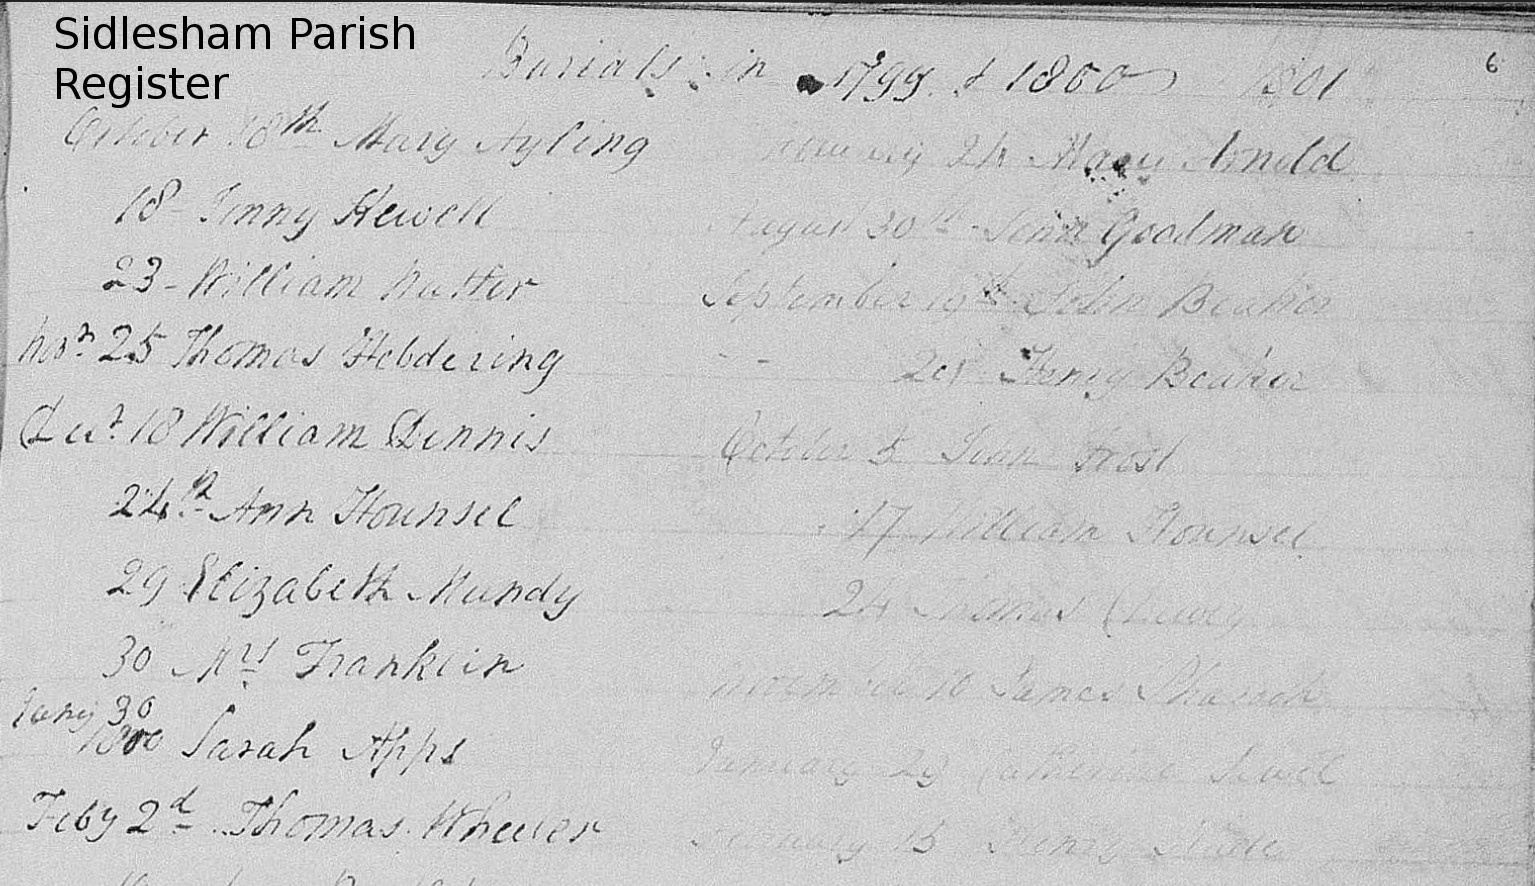 Sidlesham Parish
Register
6
Burials in 1799 & 1800 1801
October 18th Mary Ayling
18 Jenny Hewell
23 - William Nutter
Novr 25 Thomas Hebdering
Decr 18 William Dennis
24th Ann Hounsel
29 Elizabeth Mundy
30 Mrs Franklin
Jany 30
1800 Sarah Apps
Feby 2d Thomas Wheeler
February 24 Mary Arnold
August 30th John Goodman
September 19th John Beaker
Henry Beaker
October 5 Frost
17 William Hounsel
24 Thomas
November 10 James
January 29 Catherine
February 15 Henry